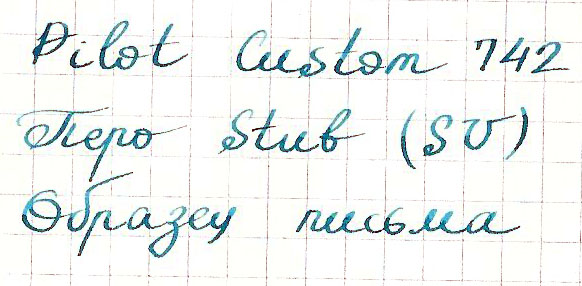 Pilot Custom 742
Перо Stub (SU)
Образец письма